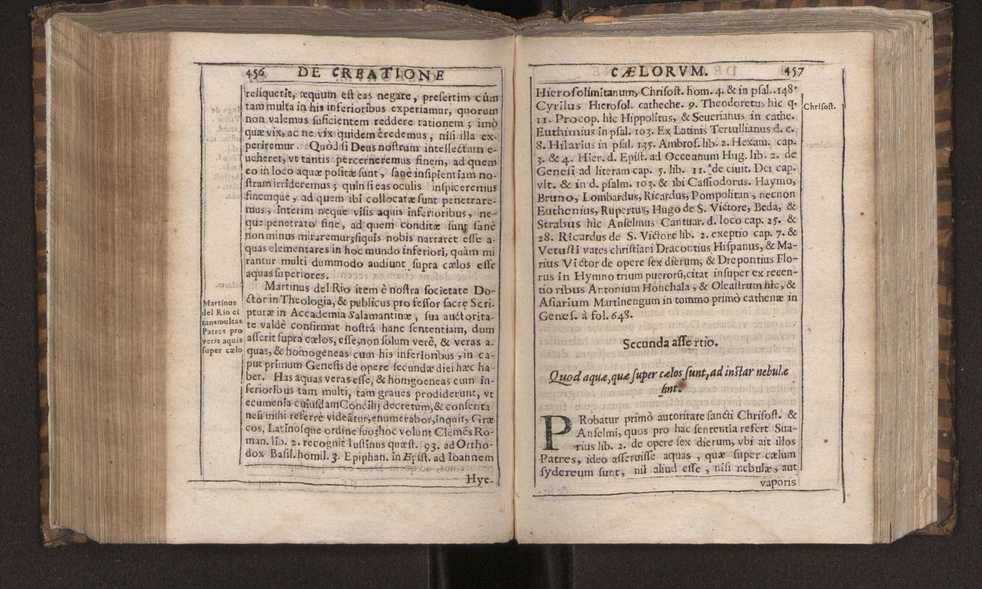 456 DE CREATIONE
reliquerit, æquum est eas negare, presertim cùm
tam multa in his inferioribus experiamur, quorum
non valemus suficientem reddere rationem; imò
quæ vix, ac ne vix quidem credemus, nisi illa ex-
periremur. Quòd si Deus nostrum intellectum e-
ueheret, vt tantis percerneremus finem, ad quem
eo in loco aquæ positæ sunt, sanè insipientiam no-
stram irrideremus; quin si eas oculis inspiceremus
finemque, ad quem ibi collocatæ sunt penetrare-
mus, Interim neque visis aquis inferioribus, ne-
que penetrato fine, ad quem conditæ sunt sanè
non minus miraremur, siquis nobis narraret esse a-
quas elementares in hoc mundo inferiori, quàm mi
rantur multi dummodo audiunt supra cælos esse
aquas superiores.
Martinus del Rio item è nostra societate Do-
ctor in Theologia, & publicus professor sacre Scri-
pturæ in Accademia Salamantinæ, sua auctorita-
te valdè confirmat nostrã hanc sententiam, dum
asserit supra cælos, esse, non solum verè, & veras a-
quas, & homogèneas cum his inferioribus, in ca-
put primum Genesis de opere secundæ diei hæc ha-
ber. Has aquas veras esse, & homgoeneas cum in-
ferioribus tam multi, tam graues prodiderunt, vt
ecumenia cuiusdam Concilij decretum, & consenta
neu mihi referre videãtur, enumerabor, inquit, Græ
cos, Latinosque ordine suo, hoc volunt Clemẽs Ro-
man. lib. 2. recognit Iustinus quæst. 93. ad Ortho-
dox Basil. homil. 3. Epiphan. in Epist. ad Ioannem
Hye-
Martinus
del Rio ci
tans multas
Patres pro
veris aquis
super cælo
CÆLORVM. 457
Hierosolimitanum, Chrisost. hom. 4. & in psal. 148.
Cyrilus Hierosol. catheche. 9. Theodoretus hic q.
11. Procop. hic Hippolitus, & Seuerianus in cathe.
Euthimius in psal. 103. Ex Latinis Tertullianus d. c.
8. Hilarius in psal. 135. Ambros. lib. 2. Hexam. cap.
3. & 4. Hier. d. Epist. ad Occeanum Hug. lib. 2. de
Genesi ad literam cap. 5. lib. 11. de ciuit. Dei cap.
vlt. & in d. psalm. 103. & ibi Cassiodorus. Haymo,
Bruno, Lombardus, Ricardus, Pompolitan, necnon
Euthenius, Rupertus, Hugo de S. Victore, Beda, &
Strabus hic Anselmus Cantuar. d. loco cap. 25. &
28. Ricardus de S. Victore lib. 2. exeptio cap. 7. &
Vetusti vates christiani Dracontius Hispanus, & Ma-
rius Victor de opere sex dierum, & Drepontius Flo-
rus in Hymno trium puerorũ, citat insuper ex recen-
tioribus Antonium Honchala, & Oleastrum hic, &
Asiarium Martinengum in tommo primò cathenæ in
Genes. à fol. 648.
Chrisost.
Secunda assertio.
Quod aquæ, quæ super cælos sunt, ad instar nebulæ
sint.
PRobatur primò autoritate sancti Chrisost. &
Anselmi, quos pro hac sententia refert Sua-
rius lib. 2. de opere sex dierum, vbi ait illos
Patres, ideo asseruisse aquas, quæ super cælum
sydereum sunt, nil aliud esse, nisi nebulæ, aut
vaporis